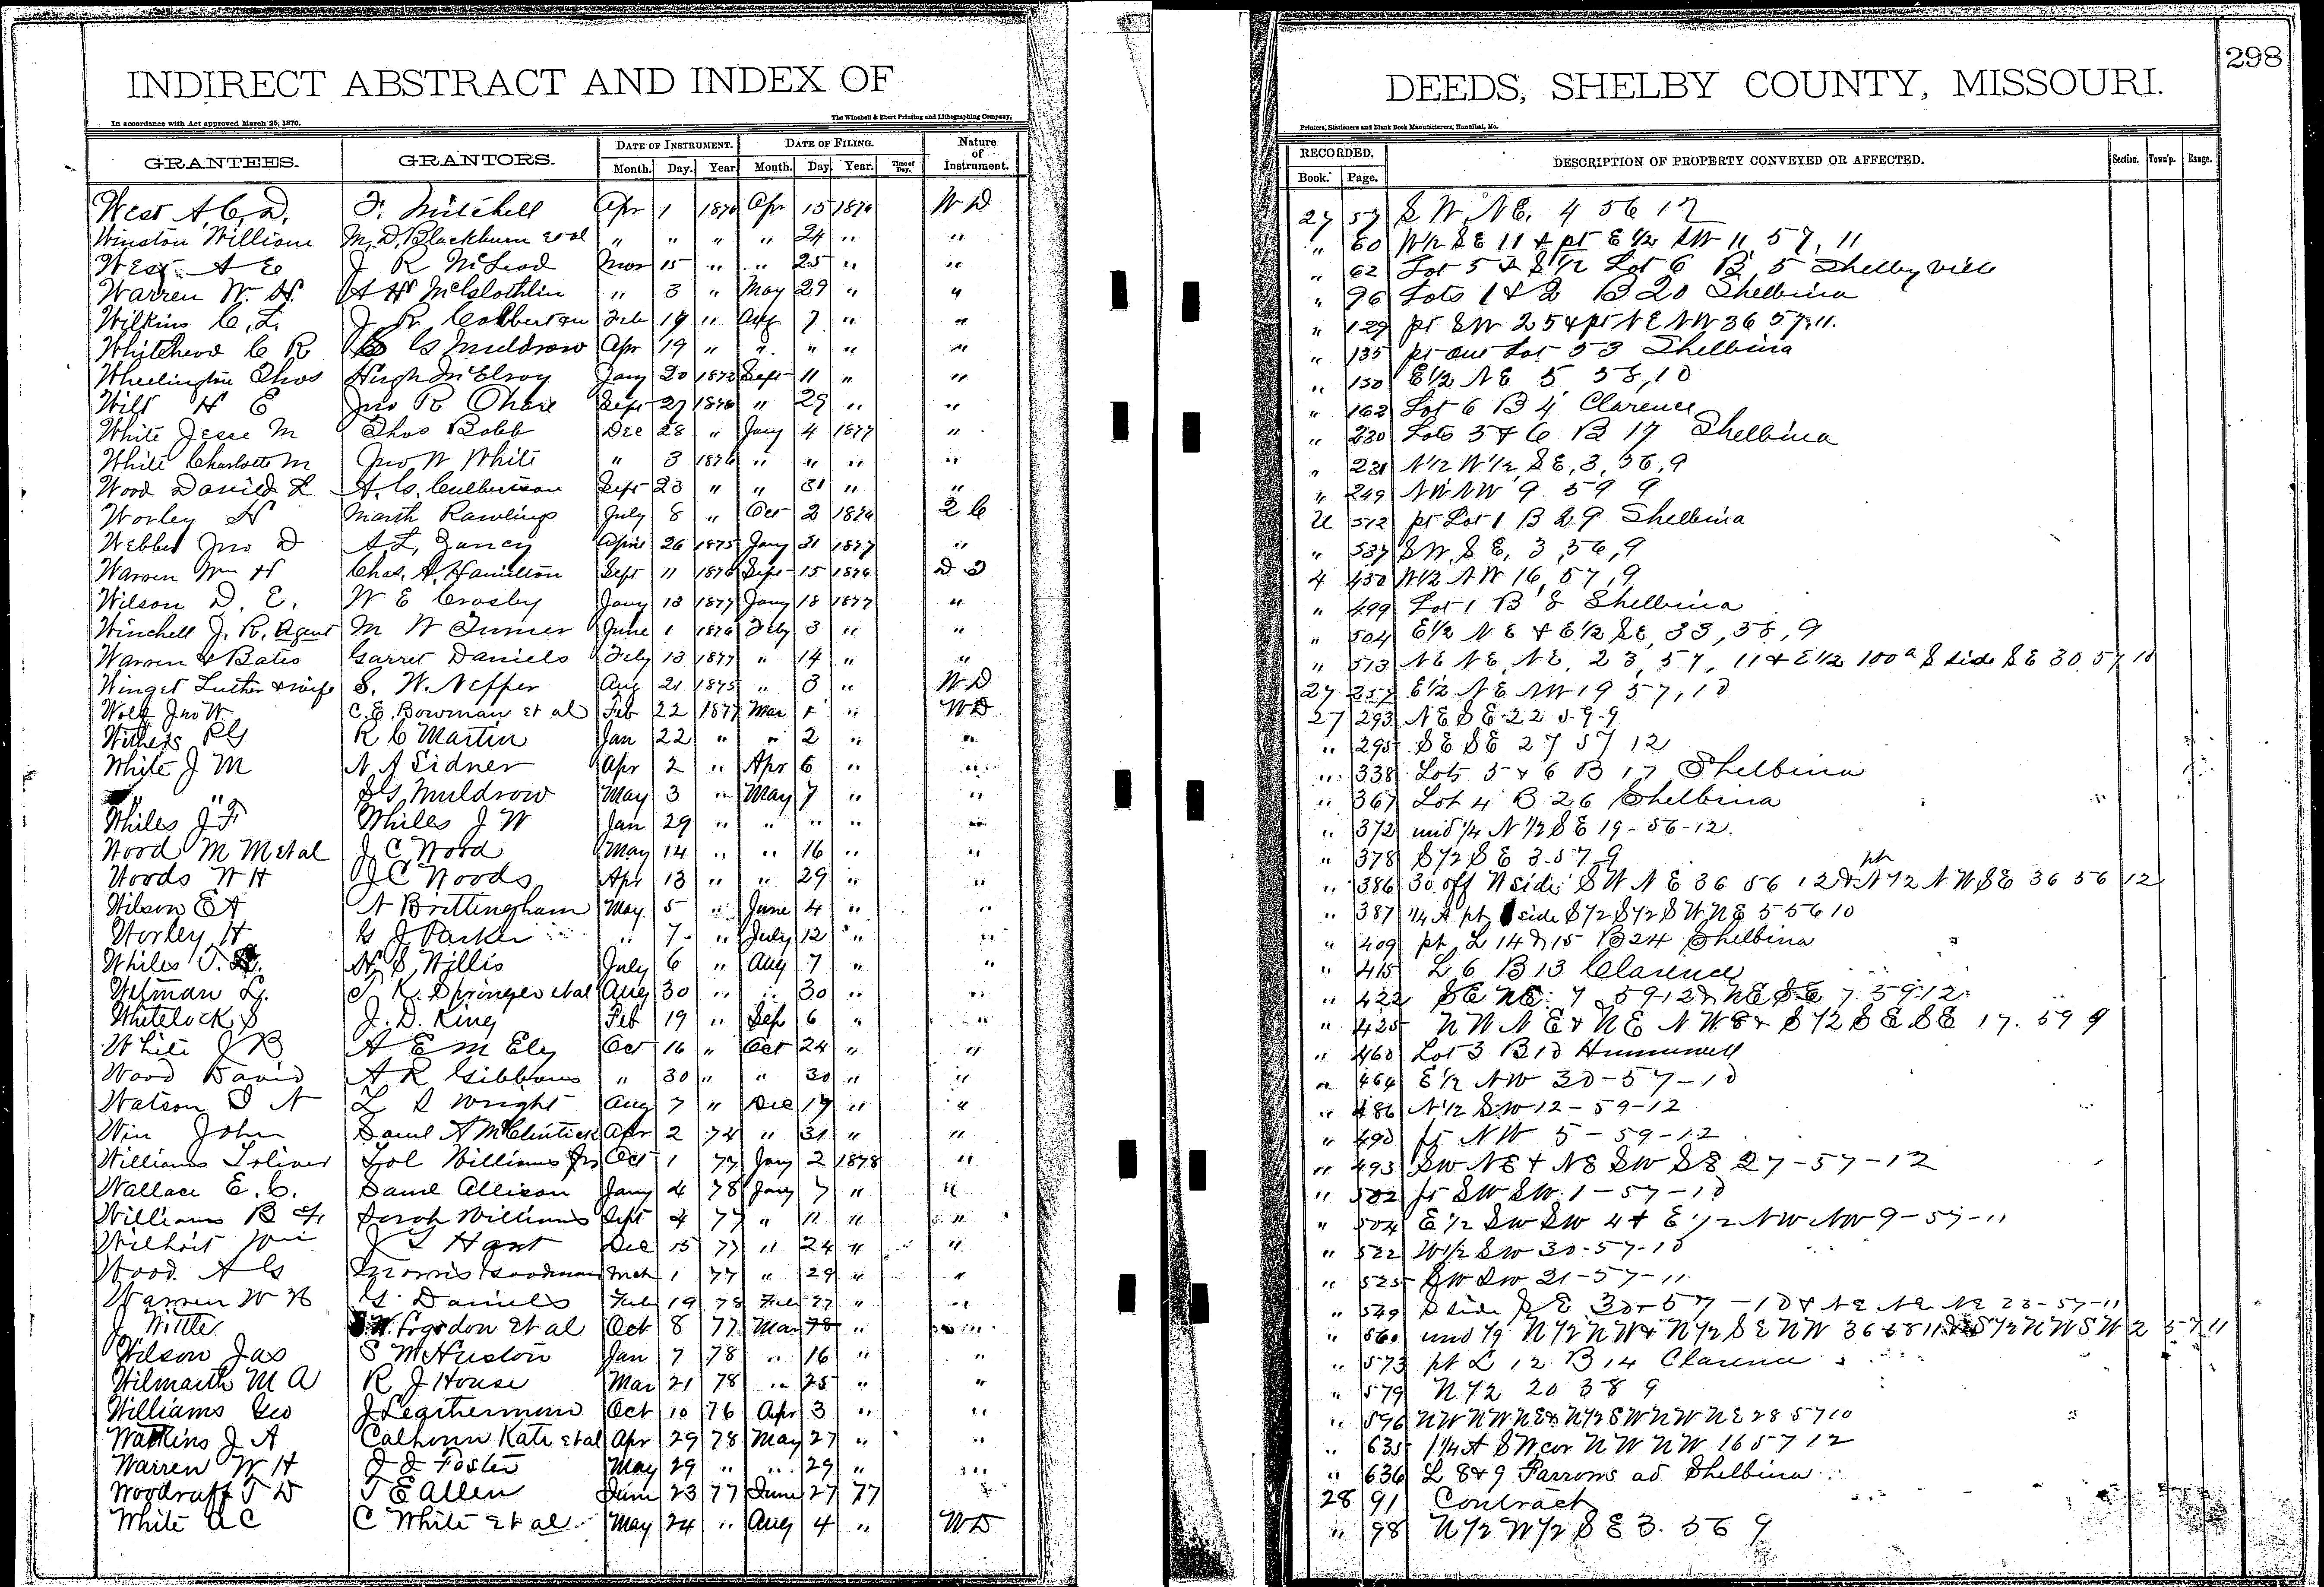 INDIRECT ABSTRACT AND INDEX OF DEEDS, SHELBY COUNTY, MISSOURI. 298
In accordance with Act approved March 25, 1870. The Winchell & Ebert Printing and Lithographing Company, Printers, Stationers and Blank Book Manufacturers, Hannibal, Mo.
GRANTEES. GRANTORS. DATE OF INSTRUMENT. DATE OF FILING. Nature of Instrument. RECORDED. DESCRIPTION OF PROPERTY CONVEYED OR AFFECTED. Section. Town'p. Range.
Month. Day. Year. Month. Day. Year. Time of Day. Book. Page.
West A. C. D. F. Mitchell Apr 1 1876 Apr 15 1876 W D 27 57 S W, N E, 4 56 12
Winston William M. D. Blackburn et al " " " " 24 " " " 60 W½ S E 11 & pt E ½ S W 11, 57, 11
West A E J R McLeod Mar 15 " " 25 " " " 62 Lot 5 & S ½ Lot 6 B 5 Shelbyville
Warren W. H. A W McGlothlin " 3 " May 29 " " " 96 Lots 1 & 2 B 20 Shelbina
Wilkins C. L. J R Feb 19 " Aug 7 " " " 129 pt S W 25 & pt N E N W 36 57, 11.
Whitehead C R G Muldrow Apr 19 " " " " " " 135 pt out Lot 53 Shelbina
Thos Hugh McElroy Jany 20 1872 Sept 11 " " " 150 E½ N E 5 58, 10
Wilt H E Jno R Ohare Sept 27 1876 " 29 " " " 162 Lot 6 B 4 Clarence
White Jesse M Thos Bobb Dec 28 " Jany 4 1877 " " 230 Lots 5 & 6 B 17 Shelbina
White Charlotte M Jno W White " 3 1876 " " " " " 231 N½ W½ S E, 3, 56, 9
Wood David L A. G. Sept 23 " " 31 " " " 249 N W N W 9 59 9
Worley H Marth Rawlings July 8 " Oct 2 1876 2 C U 512 pt Lot 1 B 29 Shelbina
Webber Jno D A. L. Yancey April 26 1875 Jany 31 1877 " " 537 S W, S E, 3, 56, 9
Warren Wm H Chas. A. Hamilton Sept 11 1876 Sept 15 1876 D D 4 450 W½ N W 16, 57, 9
Wilson D. E. W E Crosby Jany 13 1877 Jany 18 1877 " " 499 Lot 1 B 8 Shelbina
Winchell J. R. Agent M W Turner June 1 1876 Feby 3 " " " 504 E½ N E & E½ S E, 33, 58, 9
Warren & Bates Garret Daniels Feby 13 1877 " 14 " " " 513 N E N E, N E, 23, 57, 11 & E½ 100 a S side S E 30 57 10
Winget Luther & wife S. W. Neffer Aug 21 1875 " 3 " W D 27 257 E½ N E N W 19 57, 10
Wolf Jno W. C. E. Bowman et al Feb 22 1877 Mar 1 " W D 27 293 N E S E 22 59 9
Withers R G R C Martin Jan 22 " " 2 " " " 295 S E S E 27 57 12
White J M N A Sidner Apr 2 " Apr 6 " " " 338 Lots 5 & 6 B 17 Shelbina
" " J G Muldrow May 3 " May 7 " " " 367 Lot 4 B 26 Shelbina
Whiles J F Whiles J W Jan 29 " " " " " " 372 und ¼ N ½ S E 19-56-12.
Wood M M et al J C Wood May 14 " " 16 " " " 378 S ½ S E 3 57 9
Woods W H J C Woods Apr 13 " " 29 " " " 386 30 off N side S W N E 36 56 12 & pt N ½ N W S E 36 56 12
Wilson E A N Brittingham May 5 " June 4 " " " 387 ¼ A pt side S ½ S ½ S W N E 5 56 10
Worley H G J Parker " 7 " July 12 " " " 409 pt L 14 & 15 B 24 Shelbina
Whiles J. N S Willis July 6 " Aug 7 " " " 415 L 6 B 13 Clarence
L. K. Springer et al Aug 30 " " 30 " " " 422 S E N E 7 59-12 & N E S E 7 59-12
Whitelock S J. D. King Feb 19 " Sep 6 " " " 425 N W N E & N E N W & S ½ S E S E 17. 59 9
White J B A E M Ely Oct 16 " Oct 24 " " " 460 Lot 3 B 10 Hunnewell
Wood David A R Gibbons " 30 " " 30 " " " 464 E ½ N W 30-57-10
Watson D N L S Wright Aug 7 " Dec 19 " " " 486 N ½ S W 12-59-12
Win John Saml A McClintick Apr 2 74 " 31 " " " 490 pt N W 5-59-12
Williams Toliver Tol Williams Jr Oct 1 77 Jany 2 1878 " " 493 S W N E & N E S W S E 27-57-12
Wallace E. C. Saml Allison Jany 4 78 Jany 7 " " " 502 pt S W S W 1-57-10
Williams B F Sarah Williams Sept 4 77 " 11 " " " 504 E ½ S W S W 4 & E ½ N W N W 9-57-11
Wilhoit J S Hart Dec 15 77 " 24 " " " 522 W ½ S W 30-57-10
Wood A G Morris Goodman Mch 1 77 " 29 " " " 525 S W S W 21-57-11
Warren W H G. Daniels Feb 19 78 Feb 27 " " " 549 S side S E 30-57-10 & N E N E N E 23-57-11
J Wittle W. Logsdon et al Oct 8 77 Mar " " " 560 und 1/9 N ½ N W & N ½ S E N W 36 58 11 & S ½ N W S W 2 57 11
Wilson Jas S M Huston Jan 7 78 " 16 " " " 573 pt L 12 B 14 Clarence
Wilmarth M A R J House Mar 21 78 " 25 " " " 579 N ½ 20 58 9
Williams Geo J Leatherman Oct 10 76 Apr 3 " " " 596 N W N W N E & N ½ S W N W N E 28 57 10
Watkins J A Calhoun Kate et al Apr 29 78 May 27 " " " 635 1¼ A S W cor N W N W 16 57 12
Warren W H J J Foster May 29 " " 29 " " " 636 L 8 & 9 Parsons ad Shelbina
Woodruff T D T E Allen June 23 77 June 27 77 " 28 91 Contract
White A C C White et al May 24 " Aug 4 " W D " 98 N ½ W ½ S E 3. 56 9